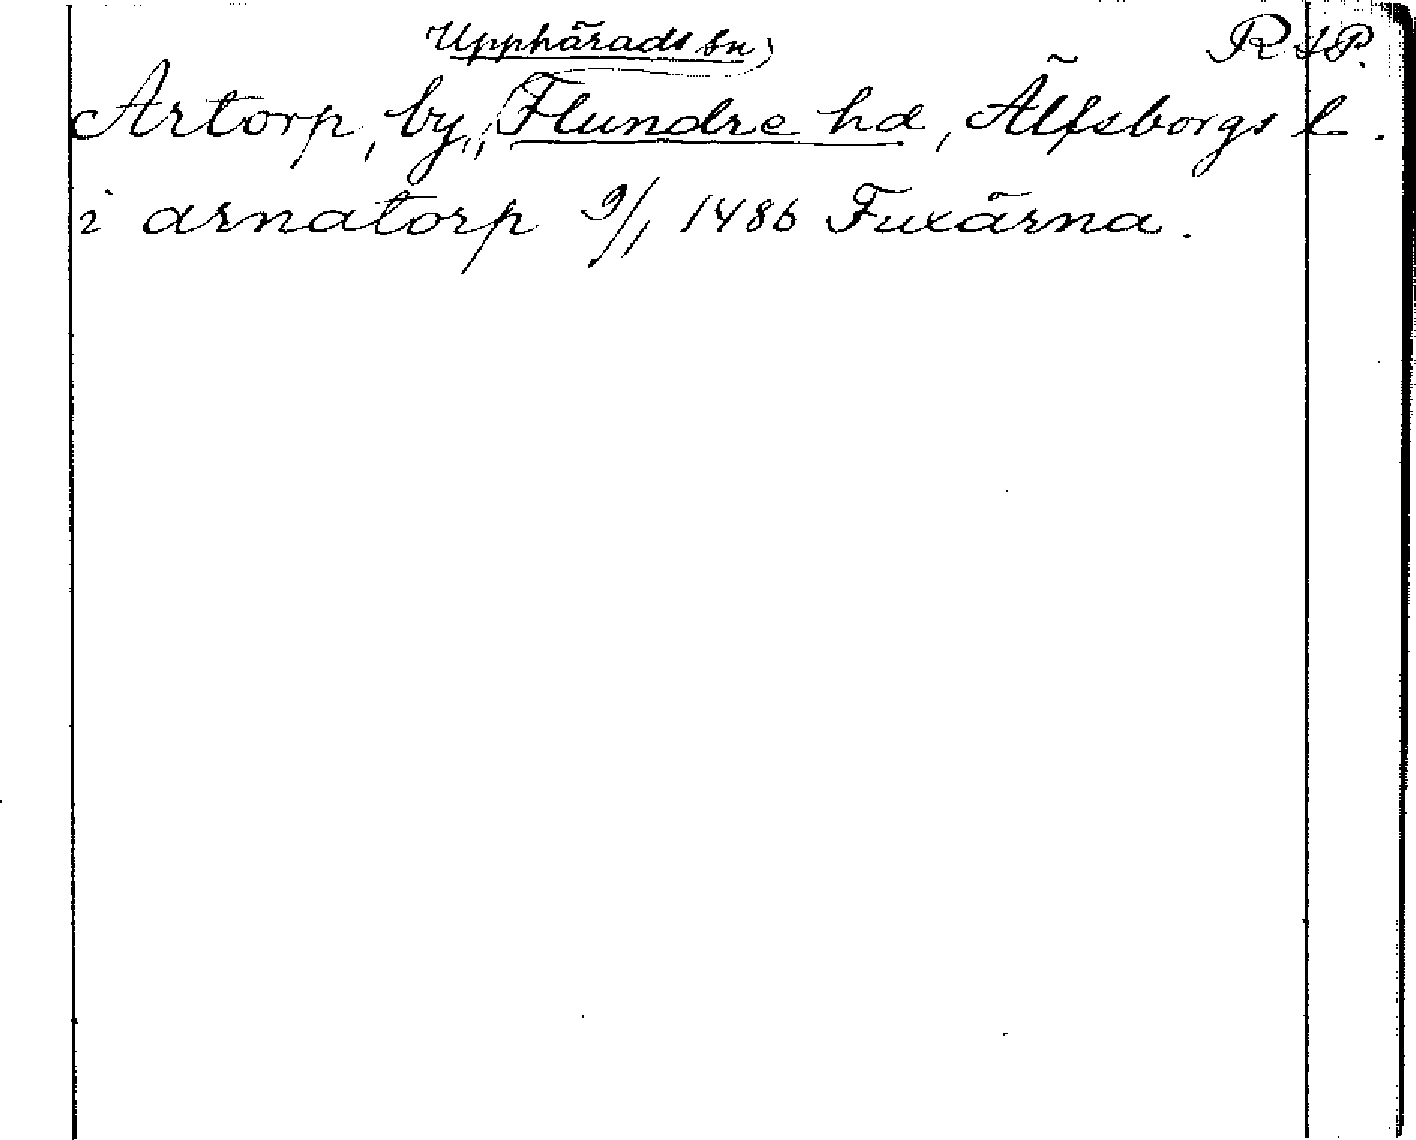 Upphärads sn, R I P.
Artorp, by, Flundre hd, Älfsborgs l.
i arnatorp 9/1 1486 Fuxärna.